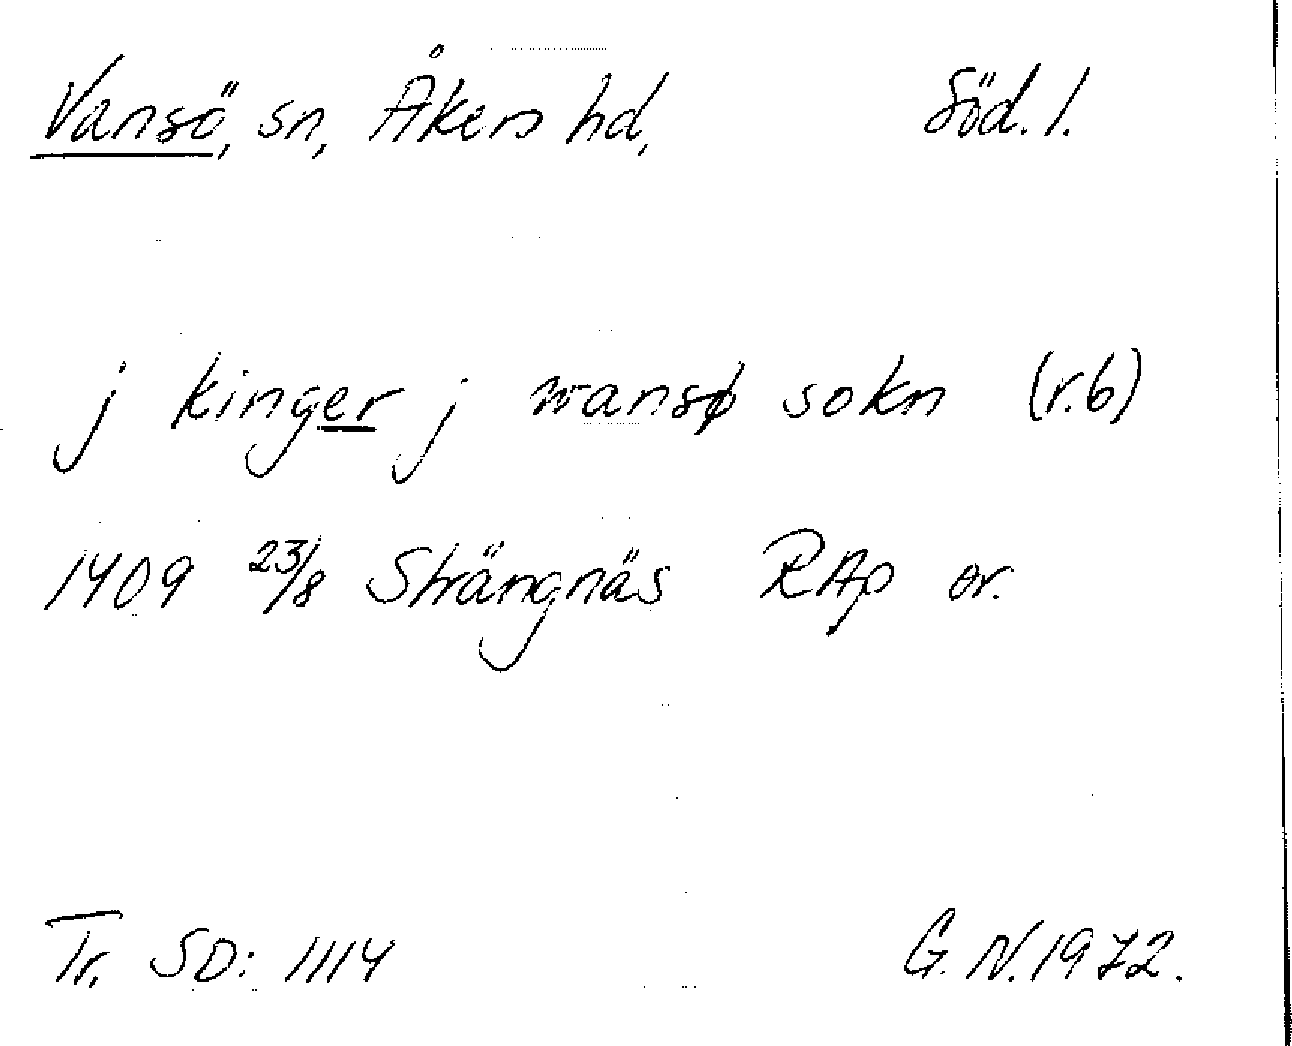 Vansö, sn, Åkers hd, Söd. l.
j kinger j wansø sokn (r.6)
1409 23/8 Strängnäs RAp or.
Tr. SD: 1114 G.N. 1972.